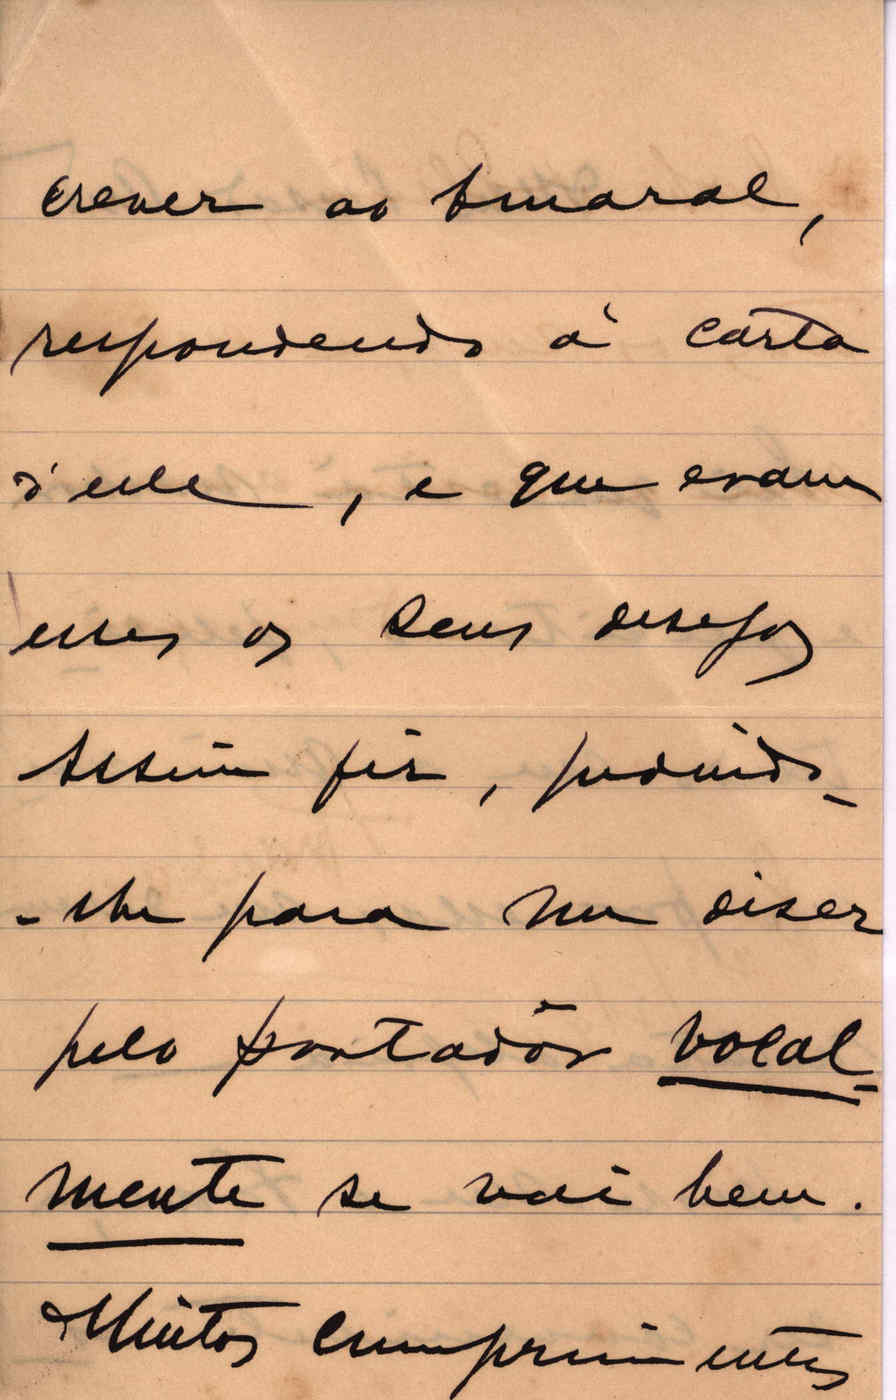 crever ao Amaral,
respondendo á carta
d'elle, e que eram
esses os seus desejos
Assim fiz, pedindo-
-lhe para me diser
pelo portadôr vocal-
mente se vai bem.
Muitos cumprimentos